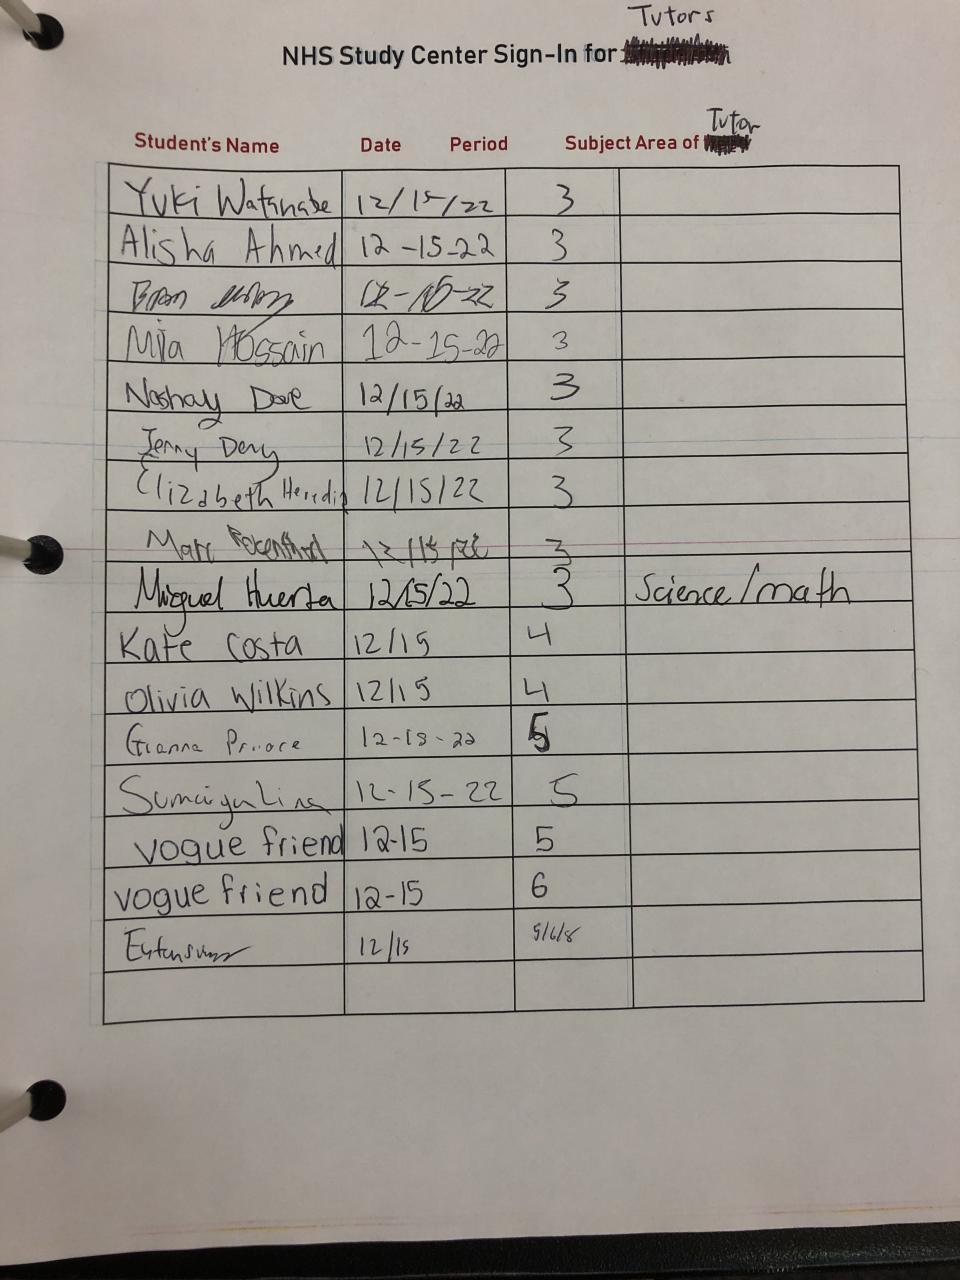 Tutors
NHS Study Center Sign-In for
Tutor
Student's Name Date Period Subject Area of
Yuki Watanabe 12/15/22 3
Alisha Ahmed 12-15-22 3
Brian 12-15-22 3
Mila Hossain 12-15-22 3
Nashay Dave 12/15/22 3
Jenny Deng 12/15/22 3
Elizabeth Heredia 12/15/22 3
Marc Rosenthal 12/15/22 3
Miguel Huerta 12/15/22 3 Science/math
Kate Costa 12/15 4
Olivia Wilkins 12/15 4
Gianna Priore 12-15-22 5
12-15-22 5
vogue friend 12-15 5
vogue friend 12-15 6
12/15 5/6/8